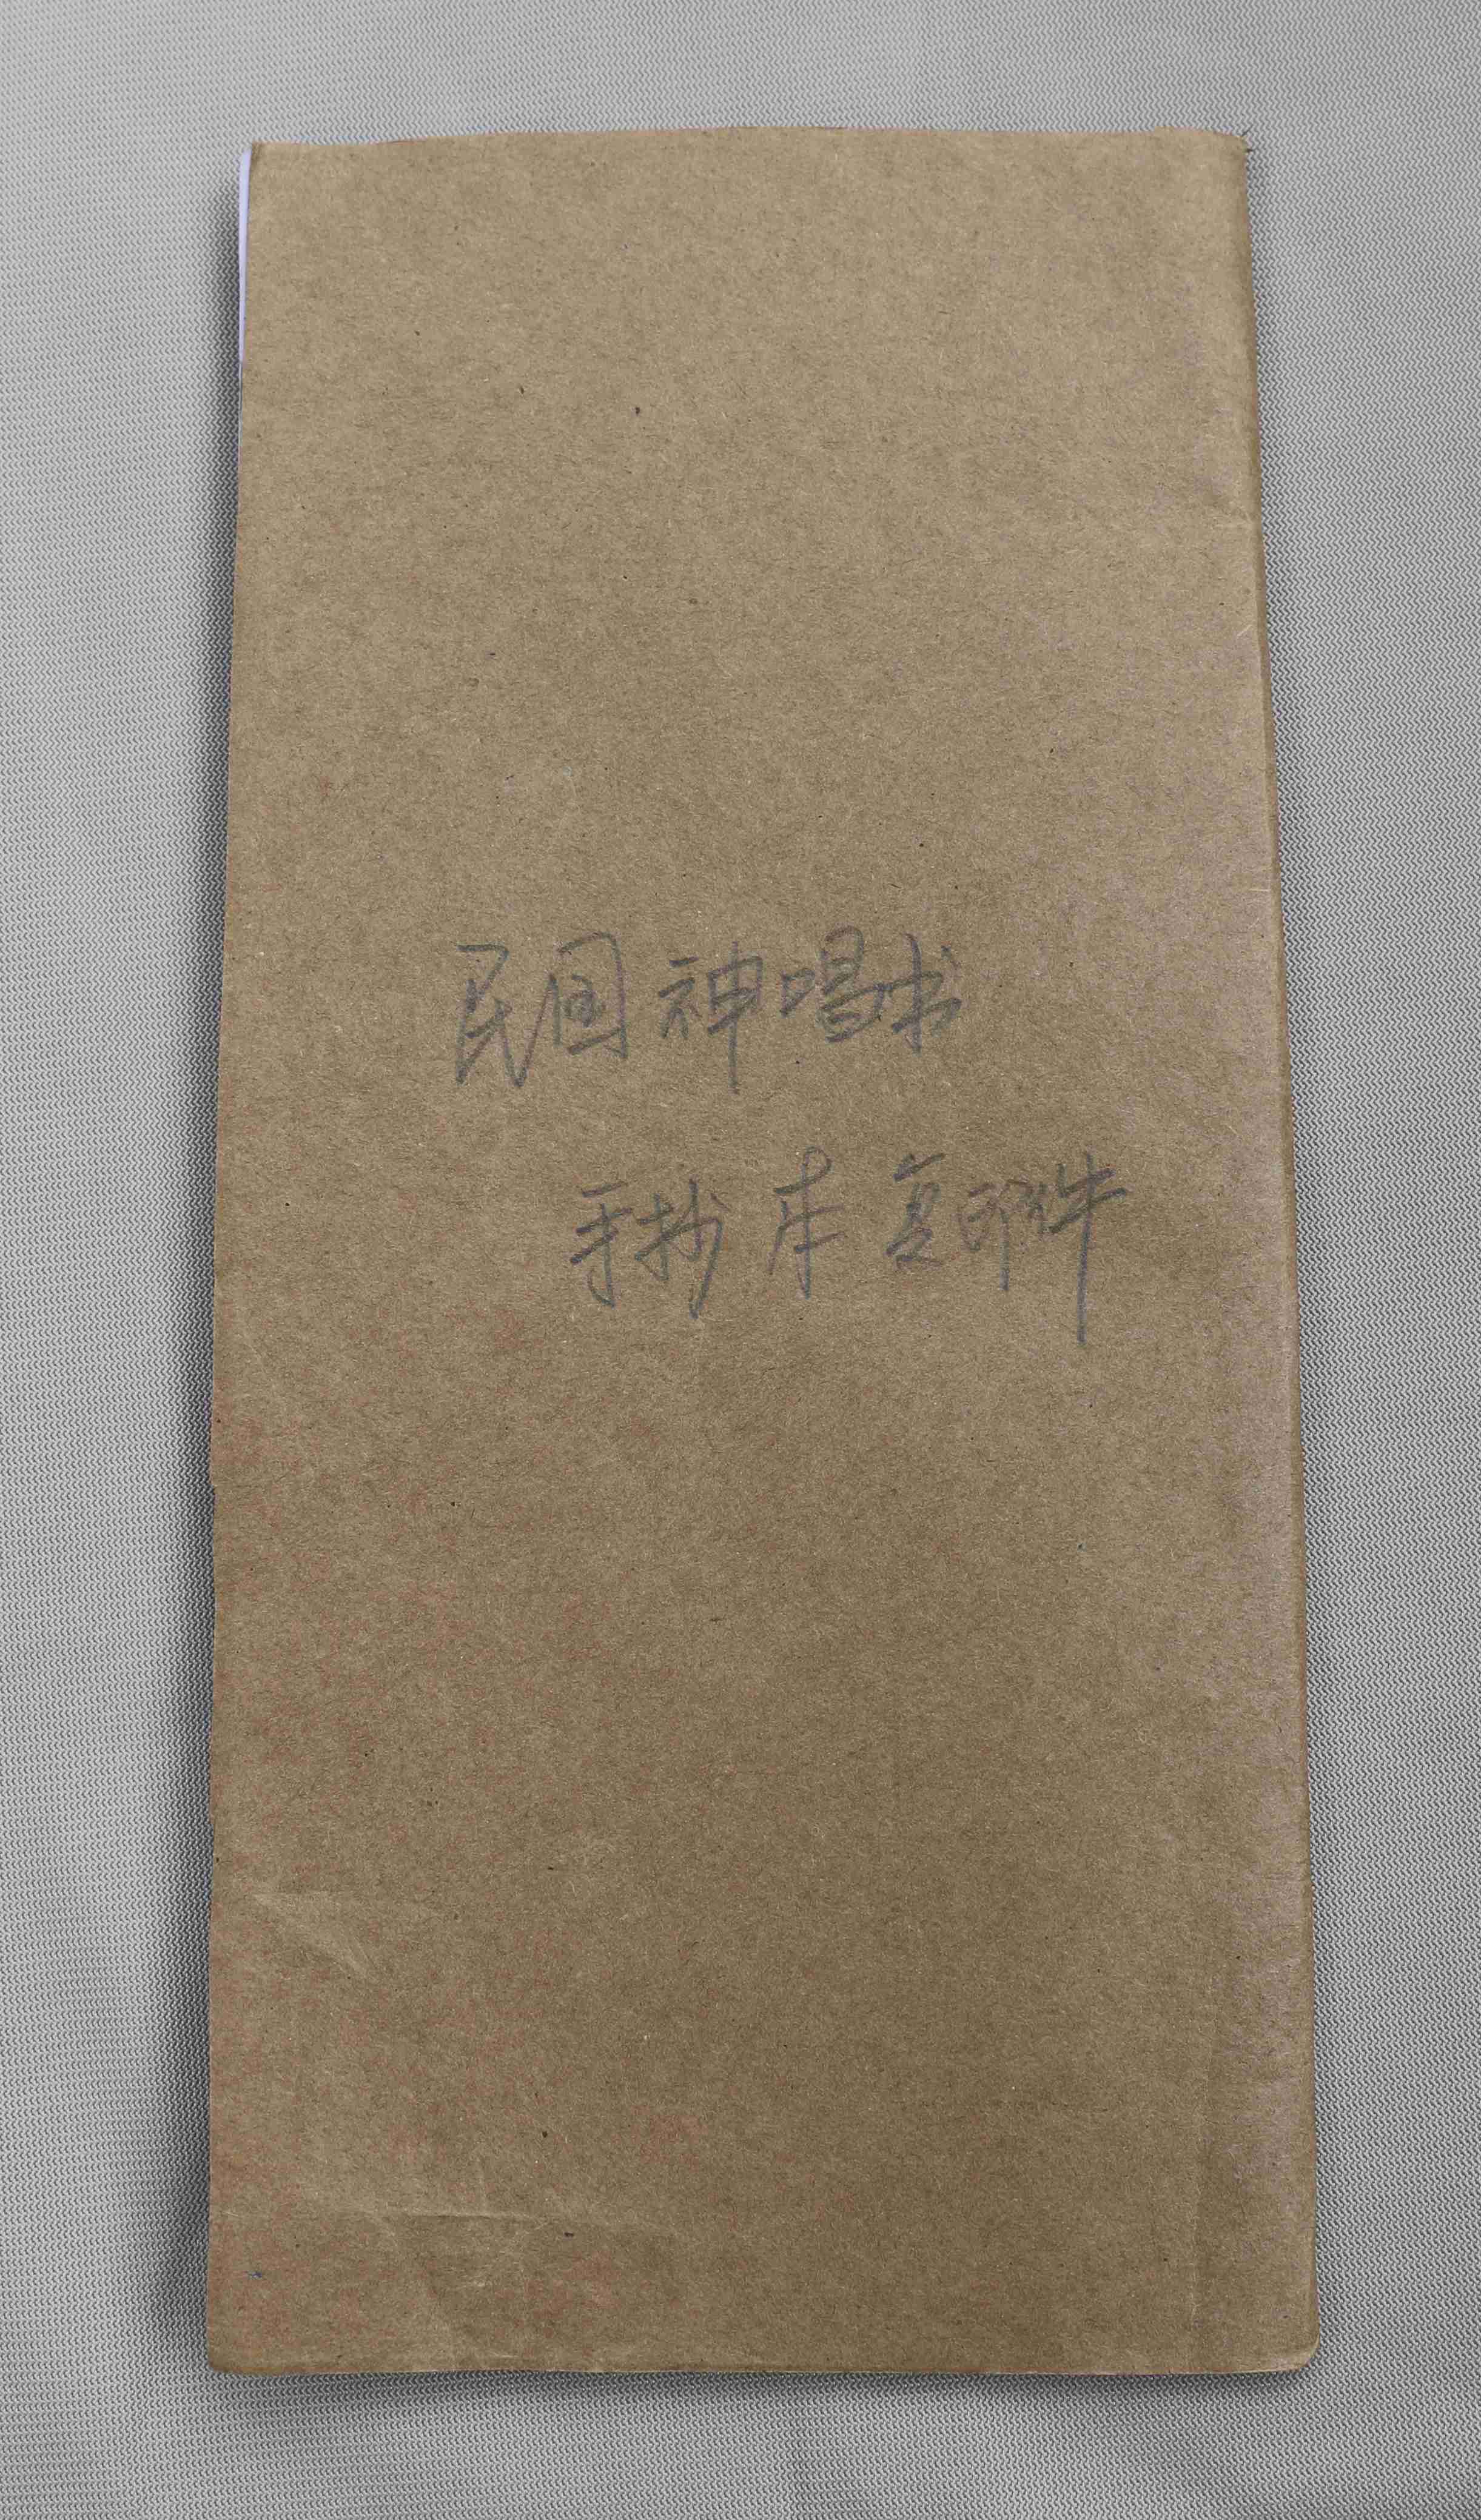 民国神唱书
手抄本复印件